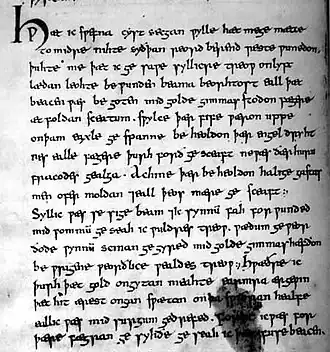 Hwæt ic swefna cyst secgan wylle hæt mege mætte
to midre nihte syðþan reord berend reste wunedon
þuhte me þæt ic ge sawe syllicre treow onlyft
lædan leohte be wunden beama beorhtost eall þæt
beacen wæs be goten mid golde gimmas stodon fægere
æt foldan sceatum swylce þær fife wæron uppe
onþam eaxle ge spanne be heoldon þær engel dryht
nes ealle fægere þurh forð ge sceaft newæs ðær huru
fracodes gealga Ac hine þær be heoldon halige gastas
men ofer moldan ⁊eall þeos mære ge sceaft
Syllic wæs se sige beam ⁊ic synnū fah for wunded
mid wommū ge seah ic wuldres treow wædum ge weor
ðode wynnū scinan ge gyred mid golde gimmas hæfdon
be wrigene weorðlice wealdes treow hwæðre ic
þurh þæt gold ongytan meahte earmra ærgewin
þæt hit ærest ongan swætan onþa swiðran healfe
eall ic wæs mid surgum gedrefed forht ic wæs for
þære fægran ge syhðe ge seah ic þæt fuse beacen